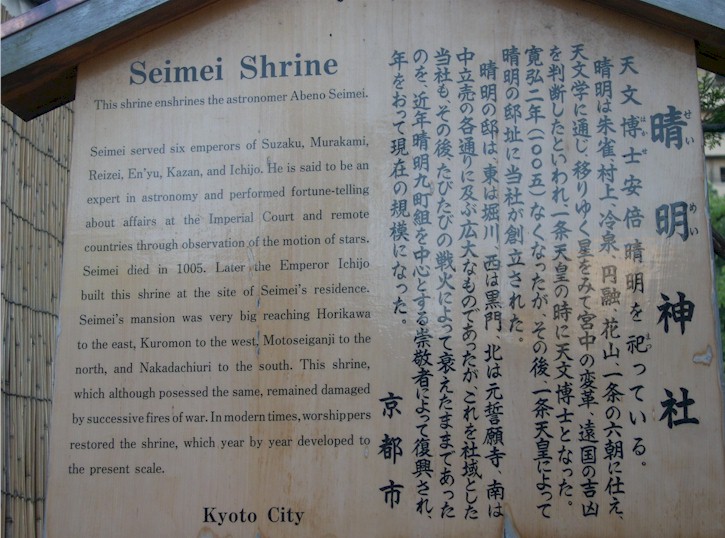 Seimei Shrine
This shrine enshrines the astronomer Abeno Seimei.
Seimei served six emperors of Suzaku, Murakami,
Reizei, En'yu, Kazan, and Ichijo. He is said to be an
expert in astronomy and performed fortune-telling
about affairs at the Imperial Court and remote
countries through observation of the motion of stars.
Seimei died in 1005. Later the Emperor Ichijo
built this shrine at the site of Seimei's residence.
Seimei's mansion was very big reaching Horikawa
to the east, Kuromon to the west, Motoseiganji to the
north, and Nakadachiuri to the south. This shrine,
which although posessed the same, remained damaged
by successive fires of war. In modern times, worshippers
restored the shrine, which year by year developed to
the present scale.
Kyoto City
晴明神社
せい めい
天文博士安倍晴明を祀っている。
はかせ まつ
晴明は朱雀、村上、冷泉、円融、花山、一条の六朝に仕え、
天文学に通じ、移りゆく星をみて宮中の変革、遠国の吉凶
を判断したといわれ、一条天皇の時に天文博士となった。
寛弘二年(一〇〇五)なくなったが、その後、一条天皇によって
晴明の邸址に当社が創立された。
晴明の邸は、東は堀川、西は黒門、北は元誓願寺、南は
中立売の各通りに及ぶ広大なものであったが、これを社域とした
当社も、その後、たびたびの戦火によって衰えたままであった
のを、近年晴明九町組を中心とする崇敬者によって復興され、
年をおって現在の規模になった。
京都市